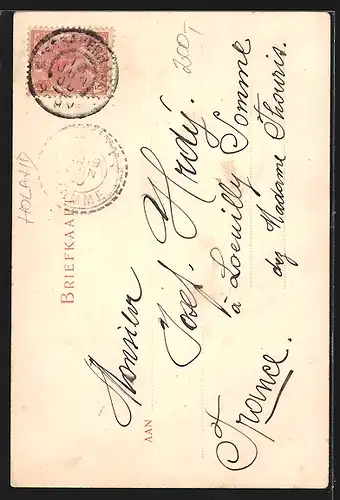 BRIEFKAART
AAN
Monsieur
Josef. Hrdý.
à Loeuilly Somme
chz Madame Thouris.
France.
200,-
HOLAND